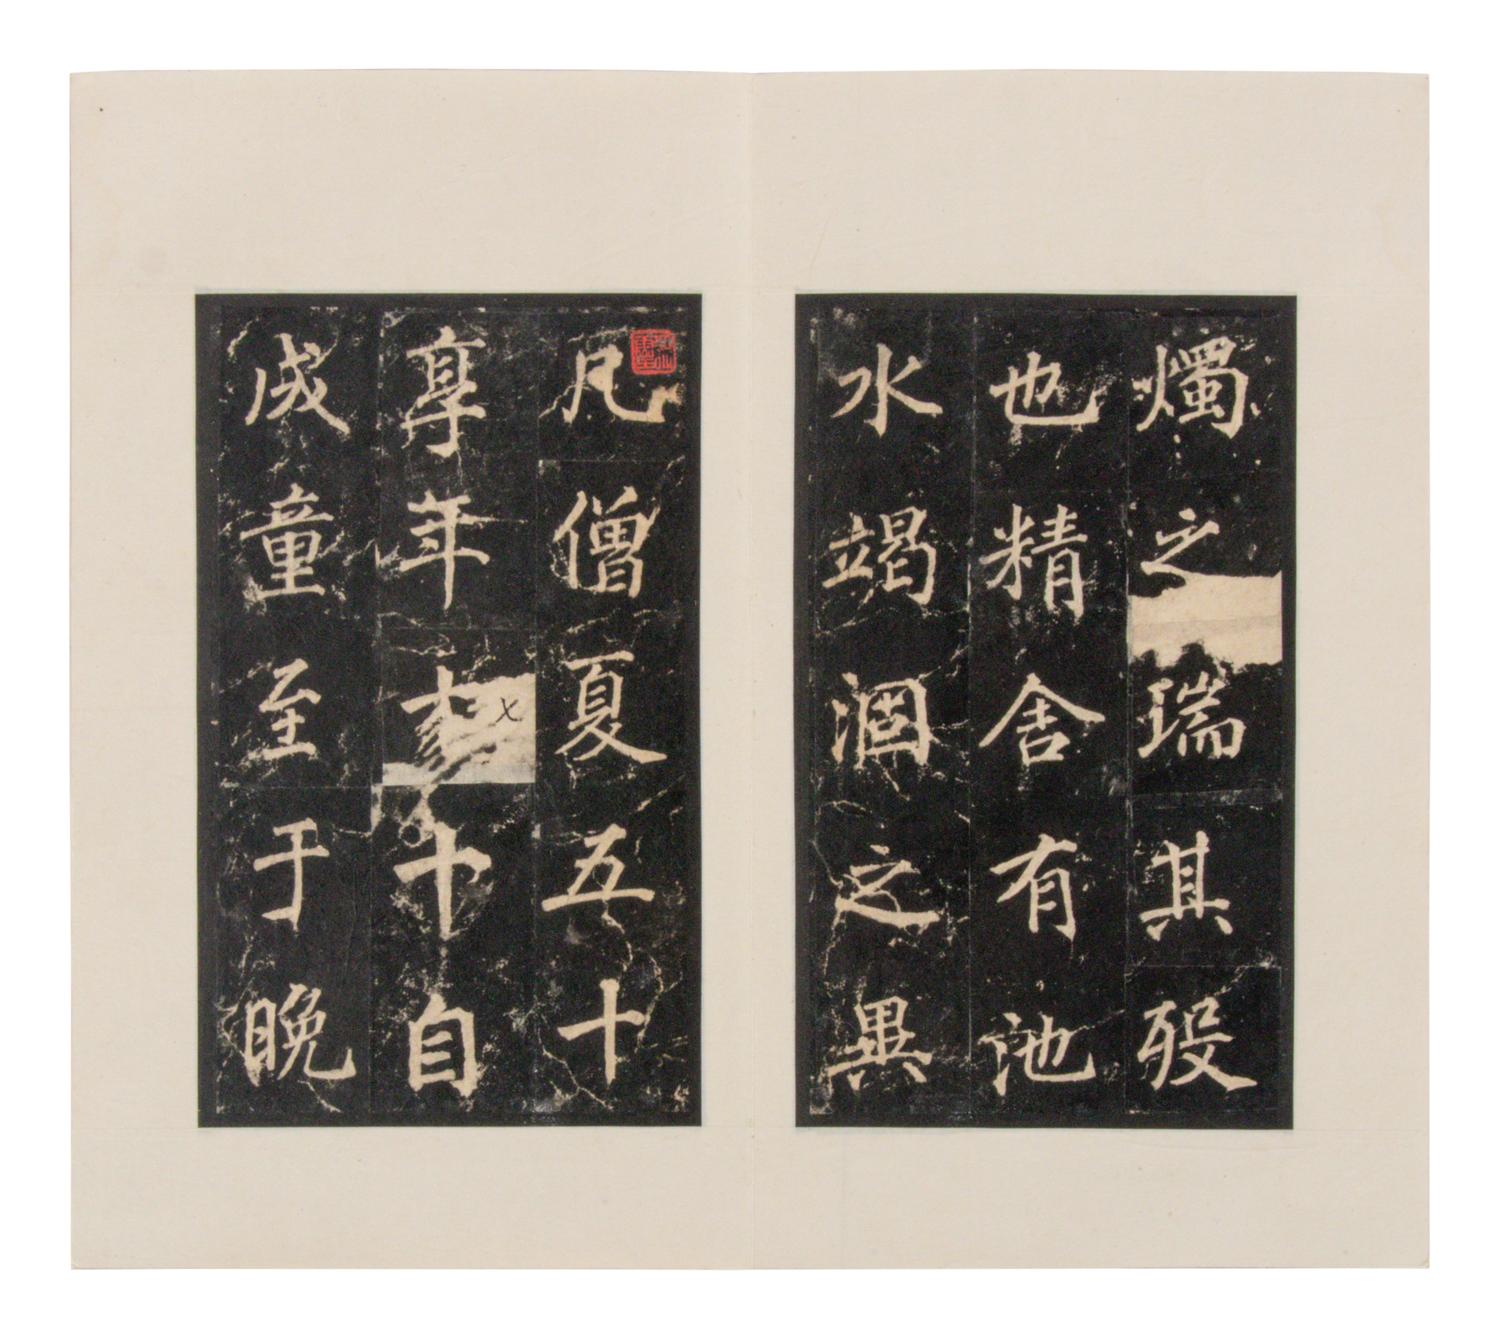 燭之瑞其殁
也精舍有池
水竭涸之異
凡僧夏五十
享年十自
成童至于晚